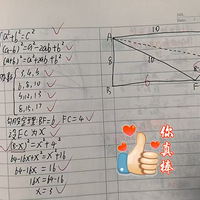 a²+b²=c²
(a-b)²=a²-2ab+b²
(a+b)²=a²+2ab+b²
3,4,5
6,8,10
5,12,13
8,15,17
BF=6, FC=4
设EC为x
(8-x)²=x²+4²
64-16x+x²=x²+16
64-16x=16
16x=64-16
x=3
A
10
8
6
B
F
你真棒